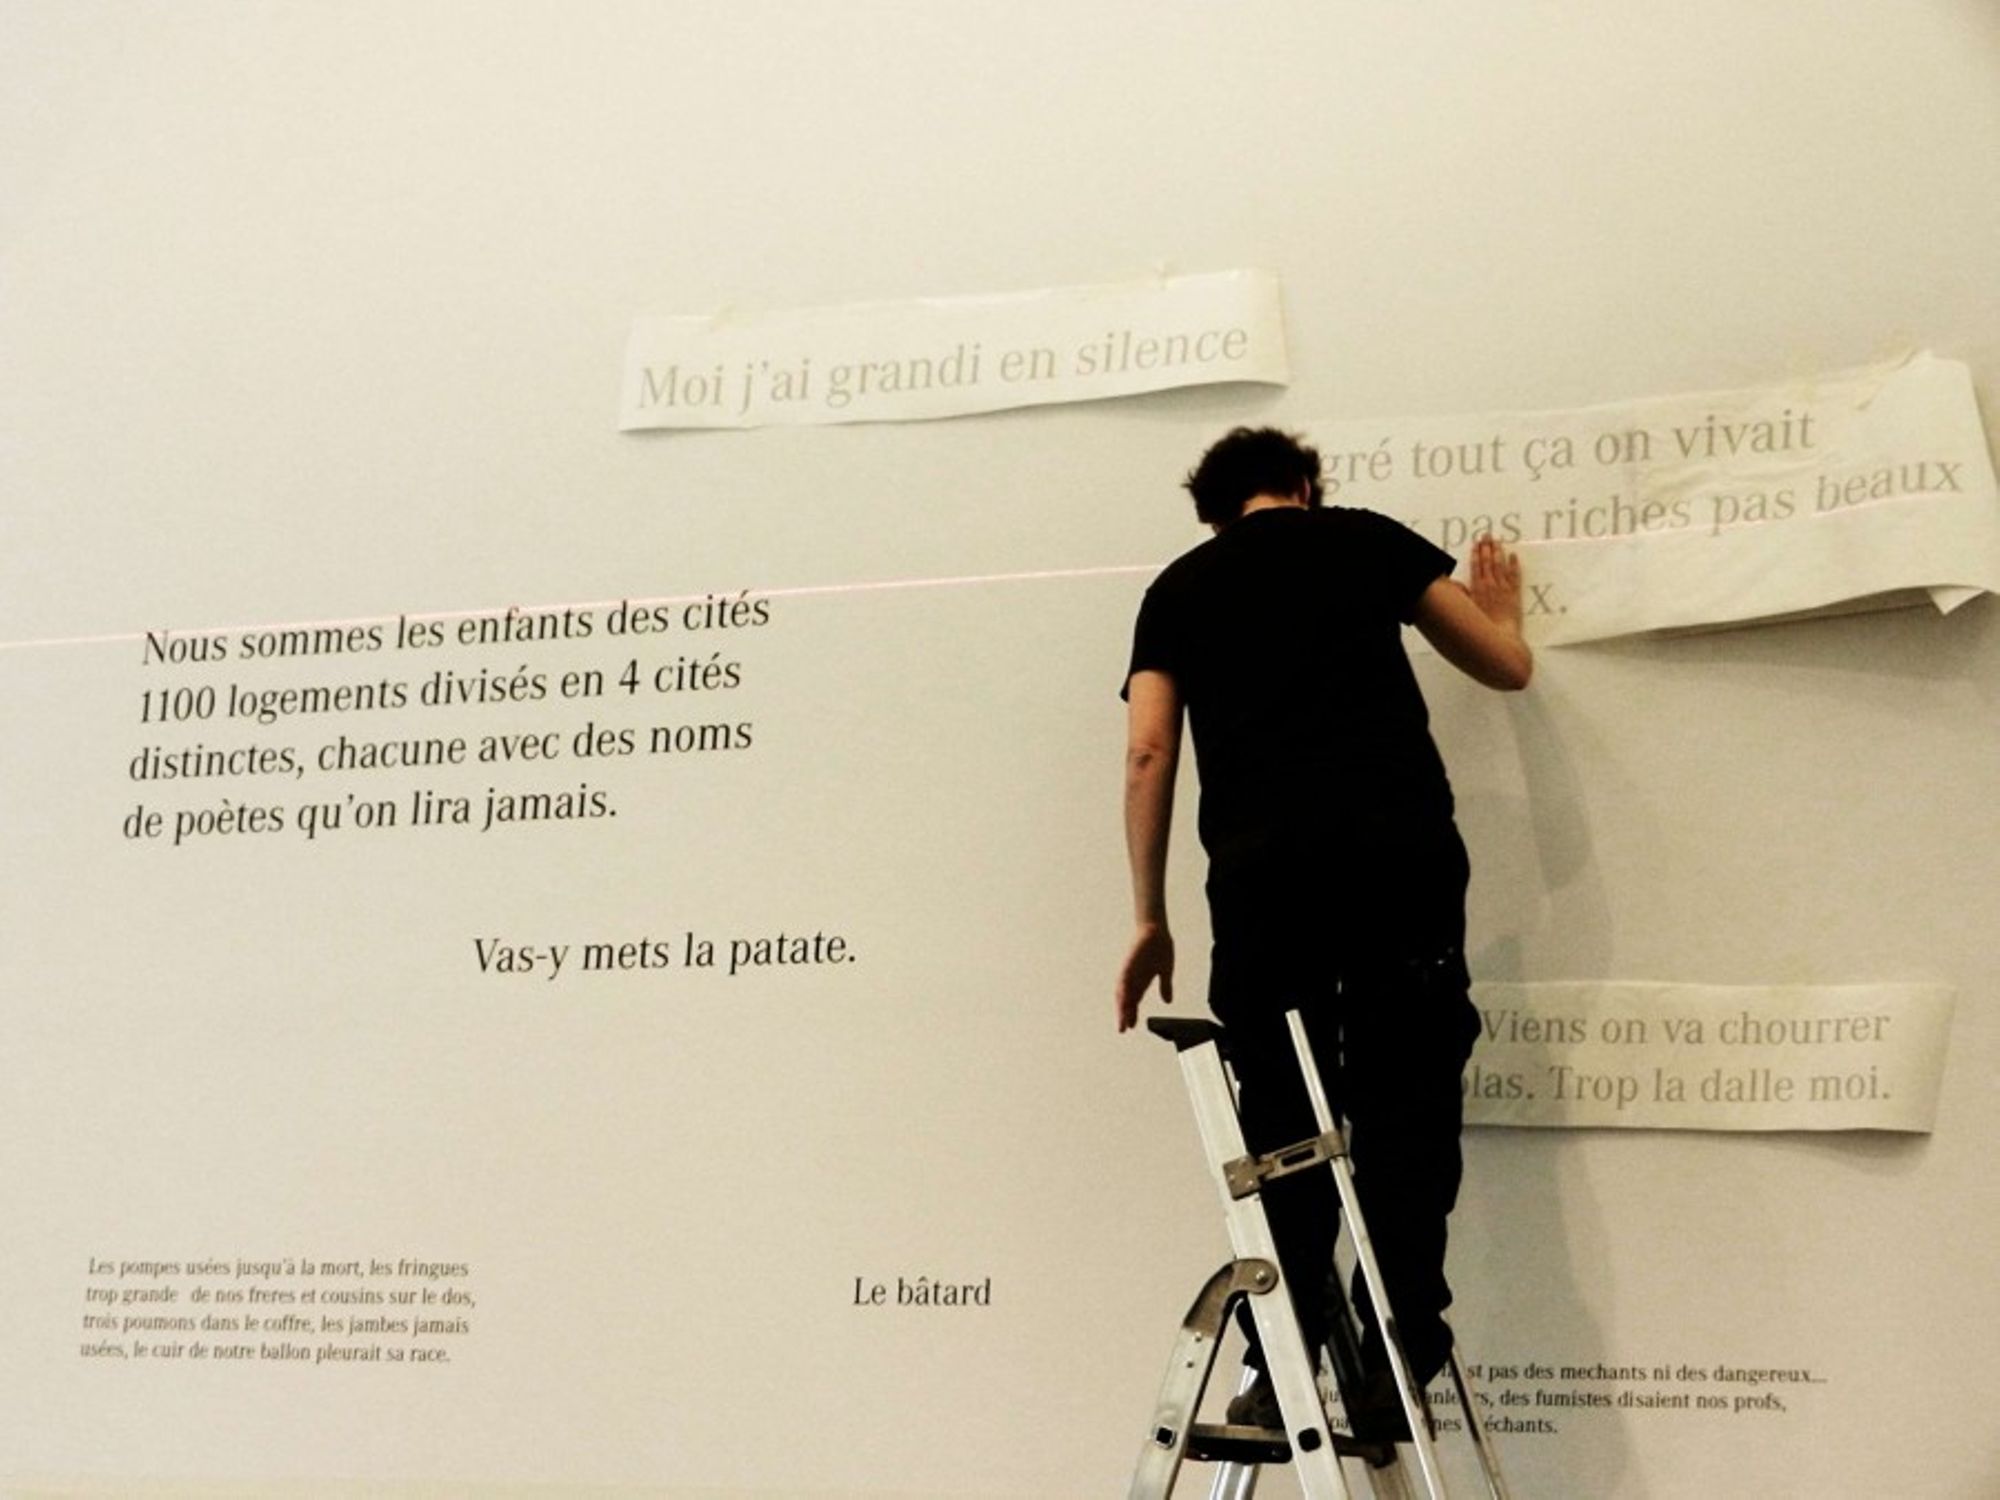 Moi j'ai grandi en silence
tout ça on vivait
pas riches pas beaux
Nous sommes les enfants des cités
1100 logements divisés en 4 cités
distinctes, chacune avec des noms
de poètes qu'on lira jamais.
Vas-y mets la patate.
Viens on va chourrer
Trop la dalle moi.
Les pompes usées jusqu'à la mort, les fringues
trop grande de nos freres et cousins sur le dos,
trois poumons dans le coffre, les jambes jamais
usées, le cuir de notre ballon pleurait sa race.
Le bâtard
pas des mechants ni des dangereux...
des fumistes disaient nos profs,